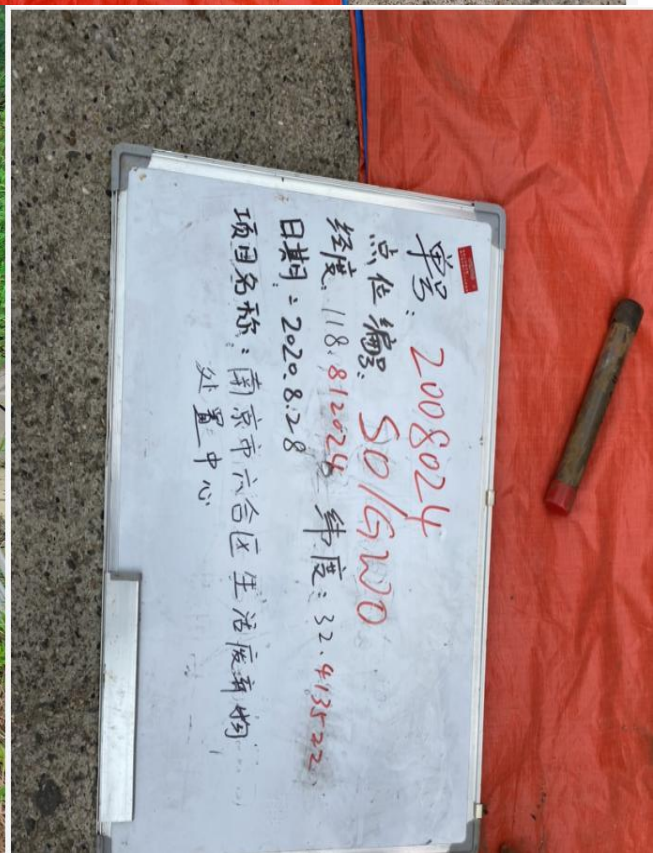 单号: 2008024
点位编号: S0/GW0
经度: 118.812024 纬度: 32.413522
日期: 2020.8.28
项目名称: 南京市六合区生活废弃物
处置中心